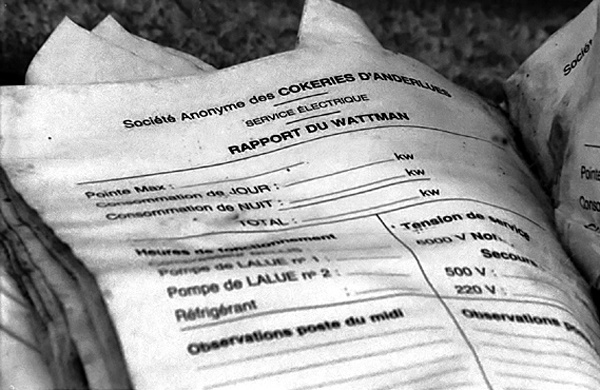 Société Anonyme des COKERIES D'ANDERLUES
SERVICE ÉLECTRIQUE
RAPPORT DU WATTMAN
Pointe Max : kw
Consommation de JOUR : kw
Consommation de NUIT : kw
TOTAL :
Heures de fonctionnement
Pompe de LALUE nº 1 :
Pompe de LALUE nº 2 :
Réfrigérant :
Observations poste du midi
Tension de service
5000 V Nor
Secours
500 V :
220 V :
Observations
Société
Pointe
Conso